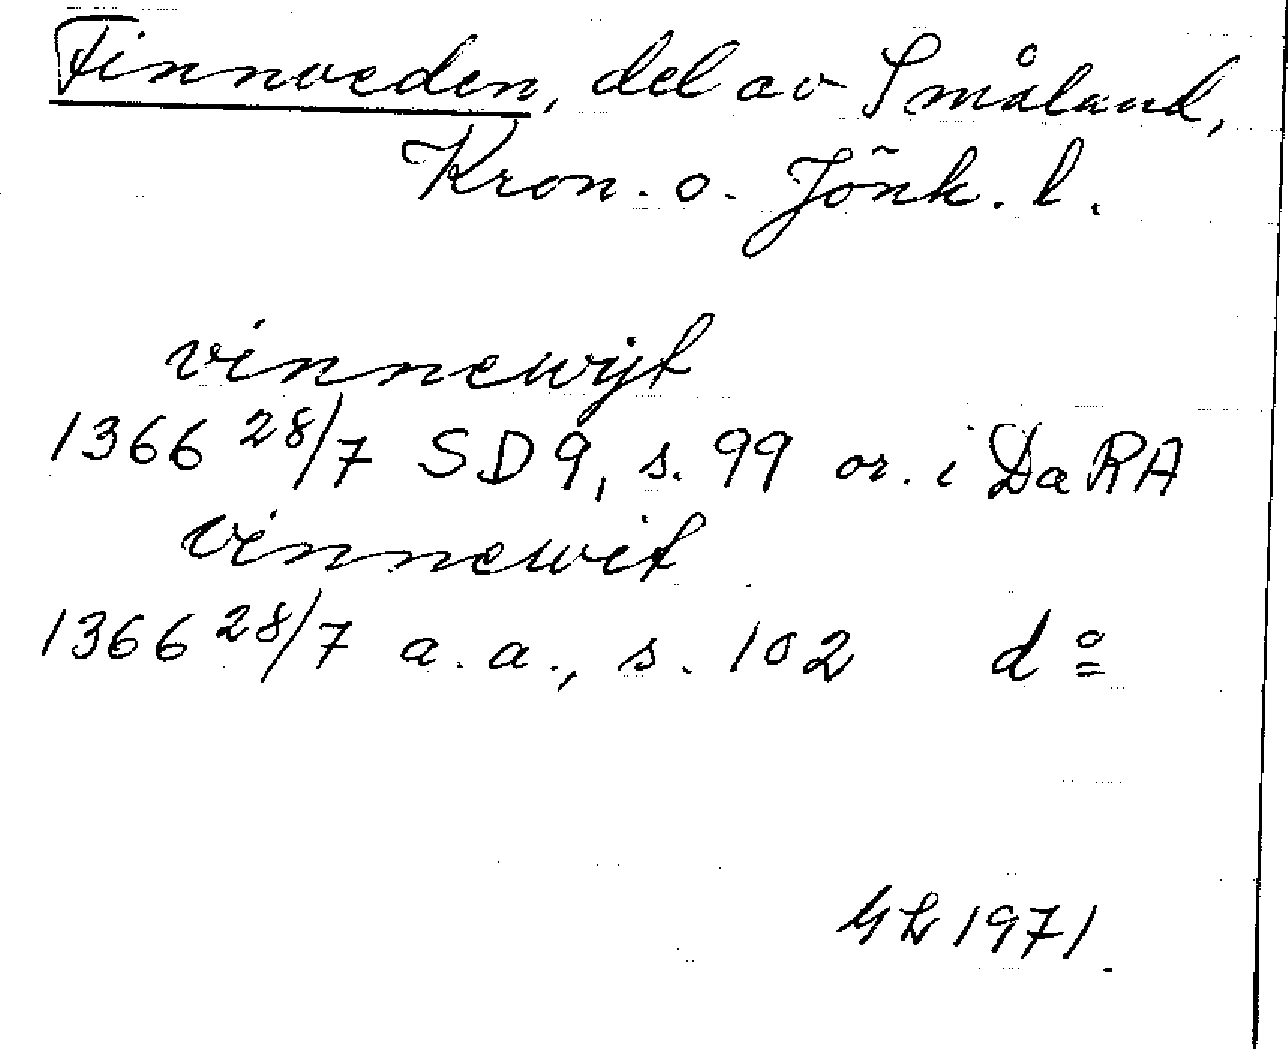 Finnveden, del av Småland,
Kron. o. Jönk. l.
vinnewijt
1366 28/7 SD 9, s. 99 or. i DaRA
vinnewit
1366 28/7 a.a., s. 102 do
1971.